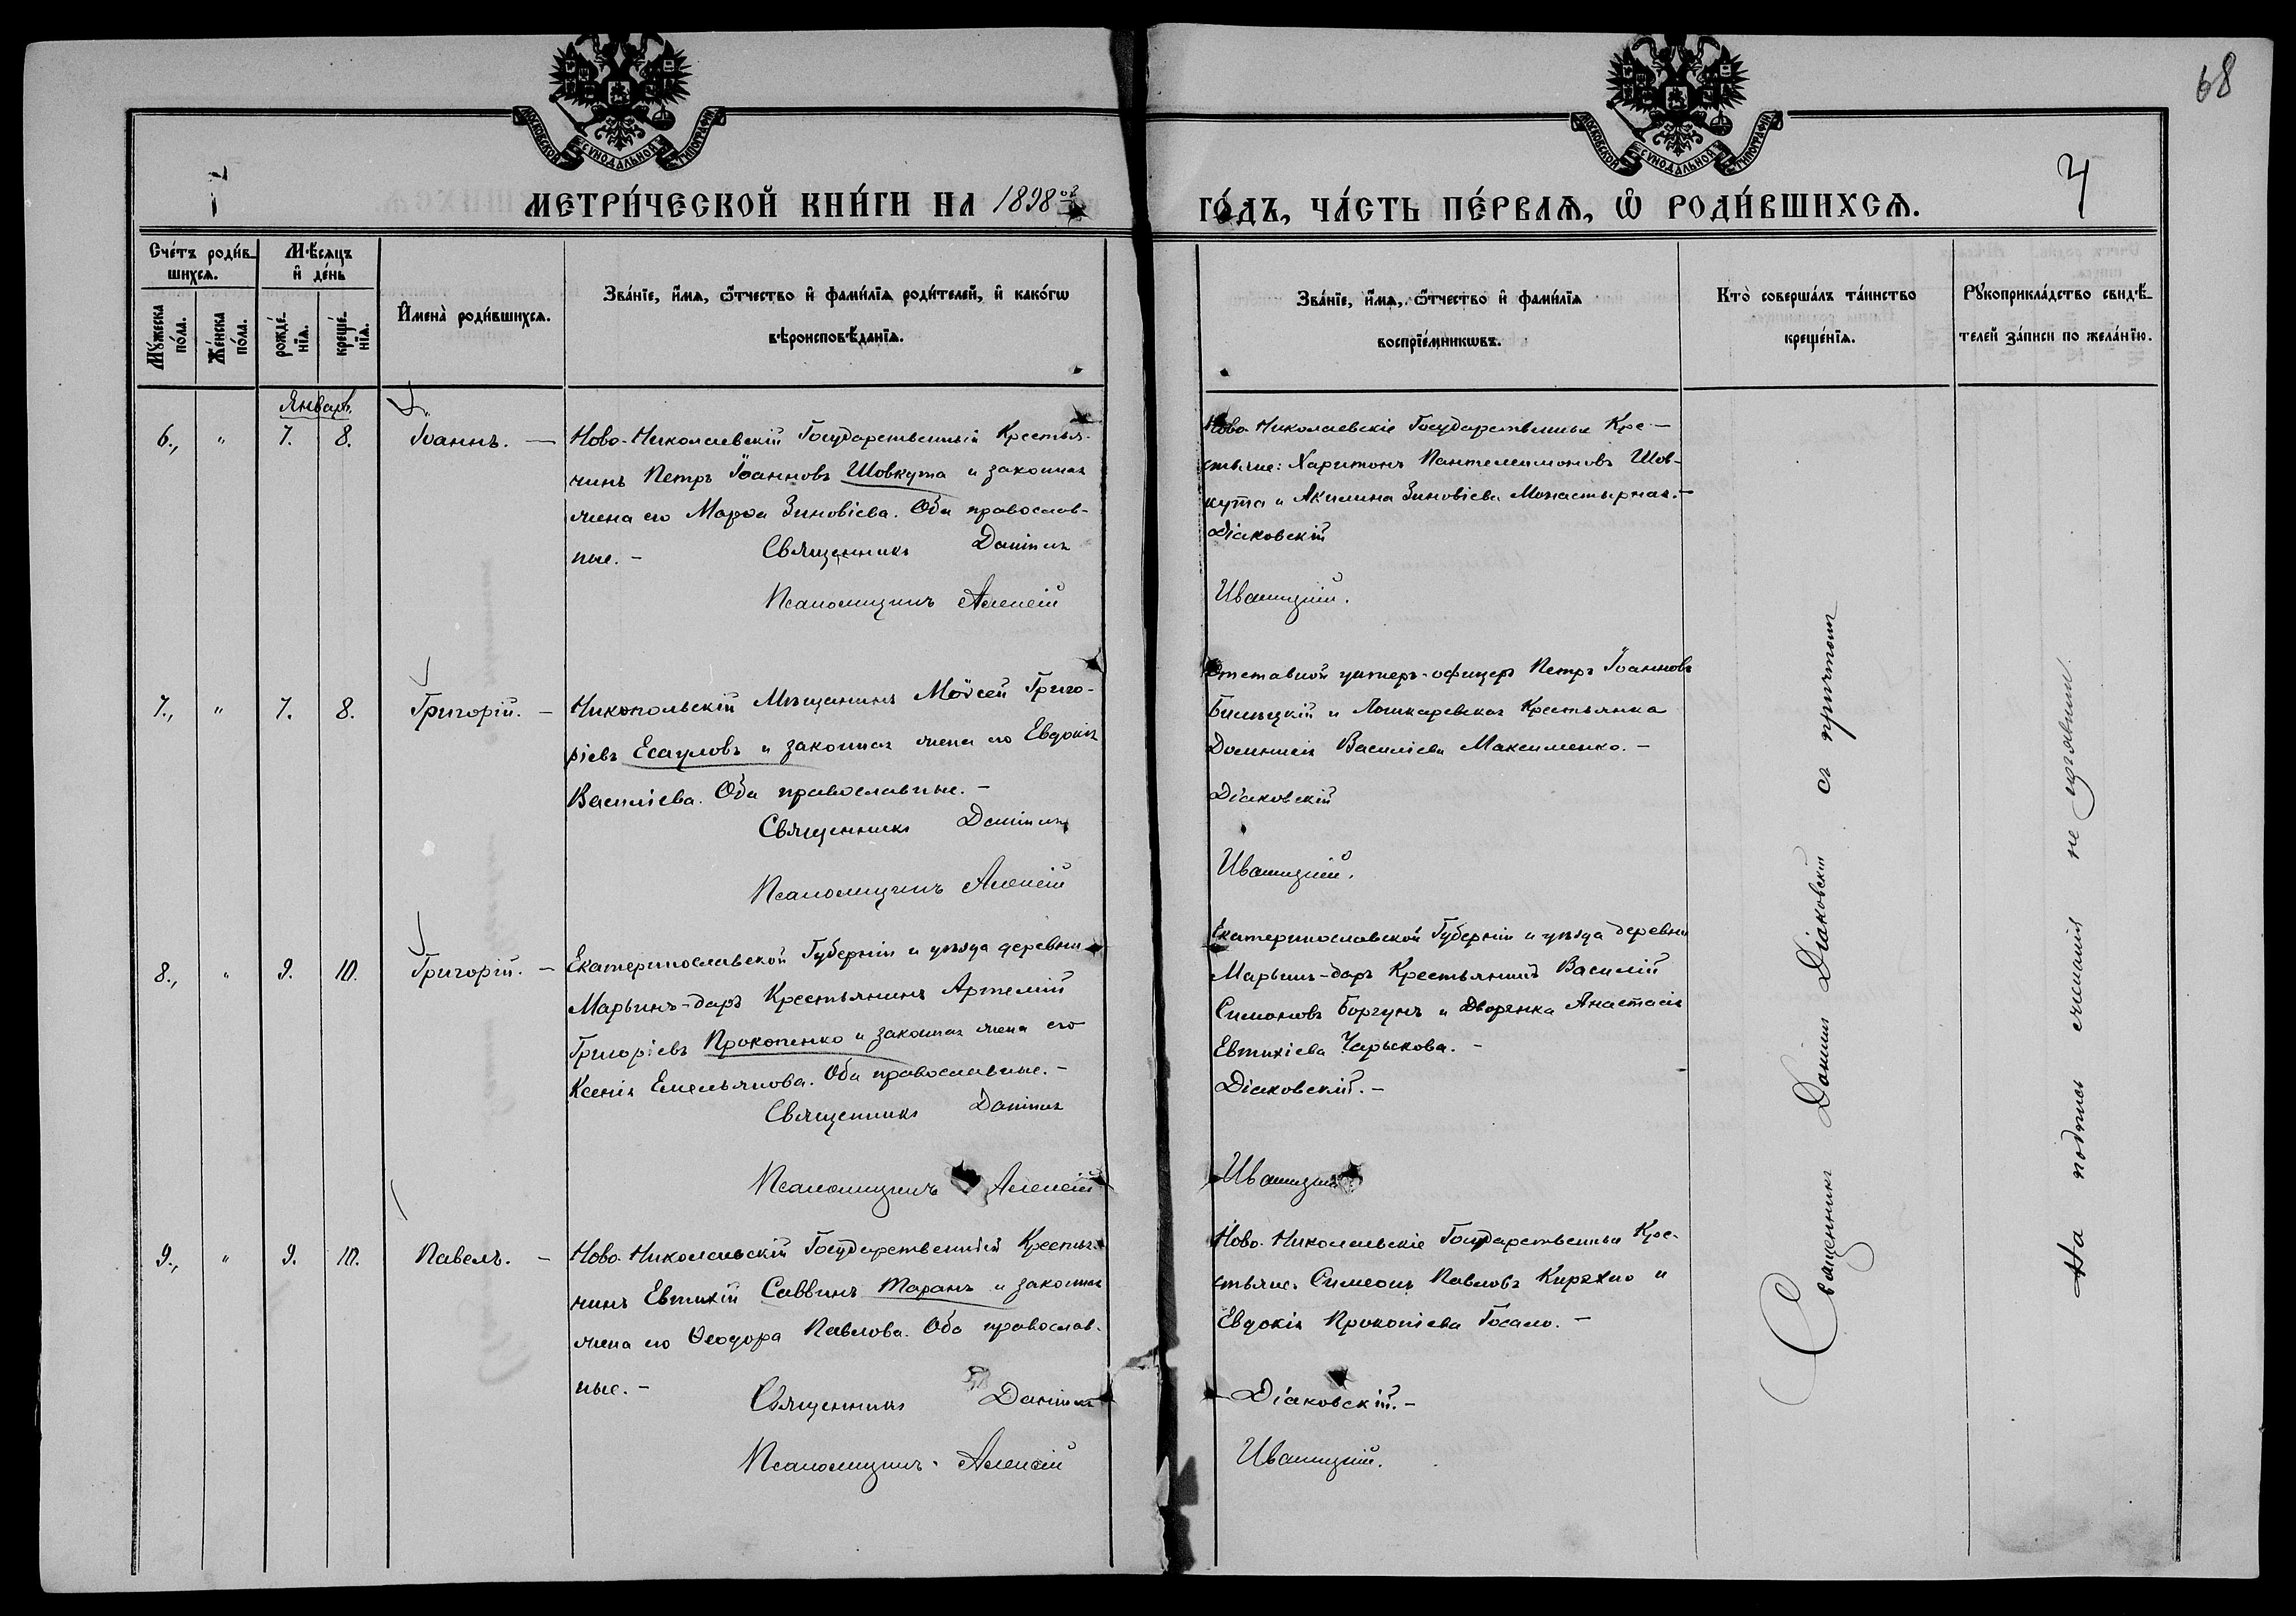 68
МОСКОВСКОЙ СУНОДАЛЬНОЙ ТИПОГРАФІИ
МОСКОВСКОЙ СУНОДАЛЬНОЙ ТИПОГРАФІИ
МЕТРИ́ЧЕСКОЙ КНИ́ГИ НА 1898 ой
ГО́ДЪ, ЧА́СТЬ ПЕ́РВАѦ, Ѿ РОДИ́ВШИХСѦ.
4
Сче́тъ роди́вшихсѧ.
Мꙋ́жеска по́ла.
Же́нска по́ла.
Мѣ́сѧцъ и҆ де́нь
рожде́нїѧ.
креще́нїѧ.
И҆мена̀ роди́вшихсѧ.
Зва́нїе, и҆́мѧ, ѻ҆́тчество и҆ фами́лїѧ роди́телей, и҆ како́гѡ
вѣроисповѣ́данїѧ.
Зва́нїе, и҆́мѧ, ѻ҆́тчество и҆ фами́лїѧ
воспрїе́мникѡвъ.
Кто̀ соверша́лъ та́инство
креще́нїѧ.
Рꙋкоприкла́дство свидѣ́-
телей за́писи по жела́нїю.
Январь.
6., " 7. 8. Іоаннъ. —
Ново-Николаевскій Государственный Крестья-
нинъ Петръ Іоанновъ Шовкута и законная
жена его Марѳа Зиновіева. Оба православ-
ные. –
Священникъ Даніилъ
Псаломщикъ Алексій
Ново-Николаевскіе Государственные Кре-
стьяне: Харитонъ Пантелеимоновъ Шов-
кута и Акилина Зиновіева Монастырная. –
Діаковскій
Иваницкій.
7., " 7. 8. Григорій. –
Никопольскій Мѣщанинъ Моѵсей Григо-
ріевъ Есауловъ и законная жена его Евдокія
Василіева. Оба православные. –
Священникъ Даніилъ
Псаломщикъ Алексій
Отставной унтеръ-офицеръ Петръ Іоанновъ
Билецкій и Лошкаревская Крестьянка
Домникія Василіева Максименко. –
Діаковскій
Иваницкій.
8., " 9. 10. Григорій. –
Екатеринославской Губерніи и уѣзда деревни
Марьинъ-даръ Крестьянинъ Артемій
Григоріевъ Прокопенко и законная жена его
Ксенія Емельянова. Оба православные. –
Священникъ Даніилъ
Псаломщикъ Алексій
Екатеринославской Губерніи и уѣзда деревни
Марьинъ-даръ Крестьянинъ Василій
Симоновъ Боргунъ и Дворянка Анастасія
Евтихіева Чарыкова. –
Діаковскій. –
Иваницкій
9., " 9. 10. Павелъ. –
Ново-Николаевскій Государственный Крестья-
нинъ Евтихій Саввинъ Таранъ и законная
жена его Ѳеодора Павлова. Оба православ-
ные. –
Священникъ Даніилъ
Псаломщикъ Алексій
Ново-Николаевскіе Государственные Кре-
стьяне: Симеонъ Павловъ и
Евдокія Прокопіева –
Діаковскій. –
Иваницкій.
Священникъ Даніилъ Діаковскій съ причтомъ
На подпись желанія не изъявили.